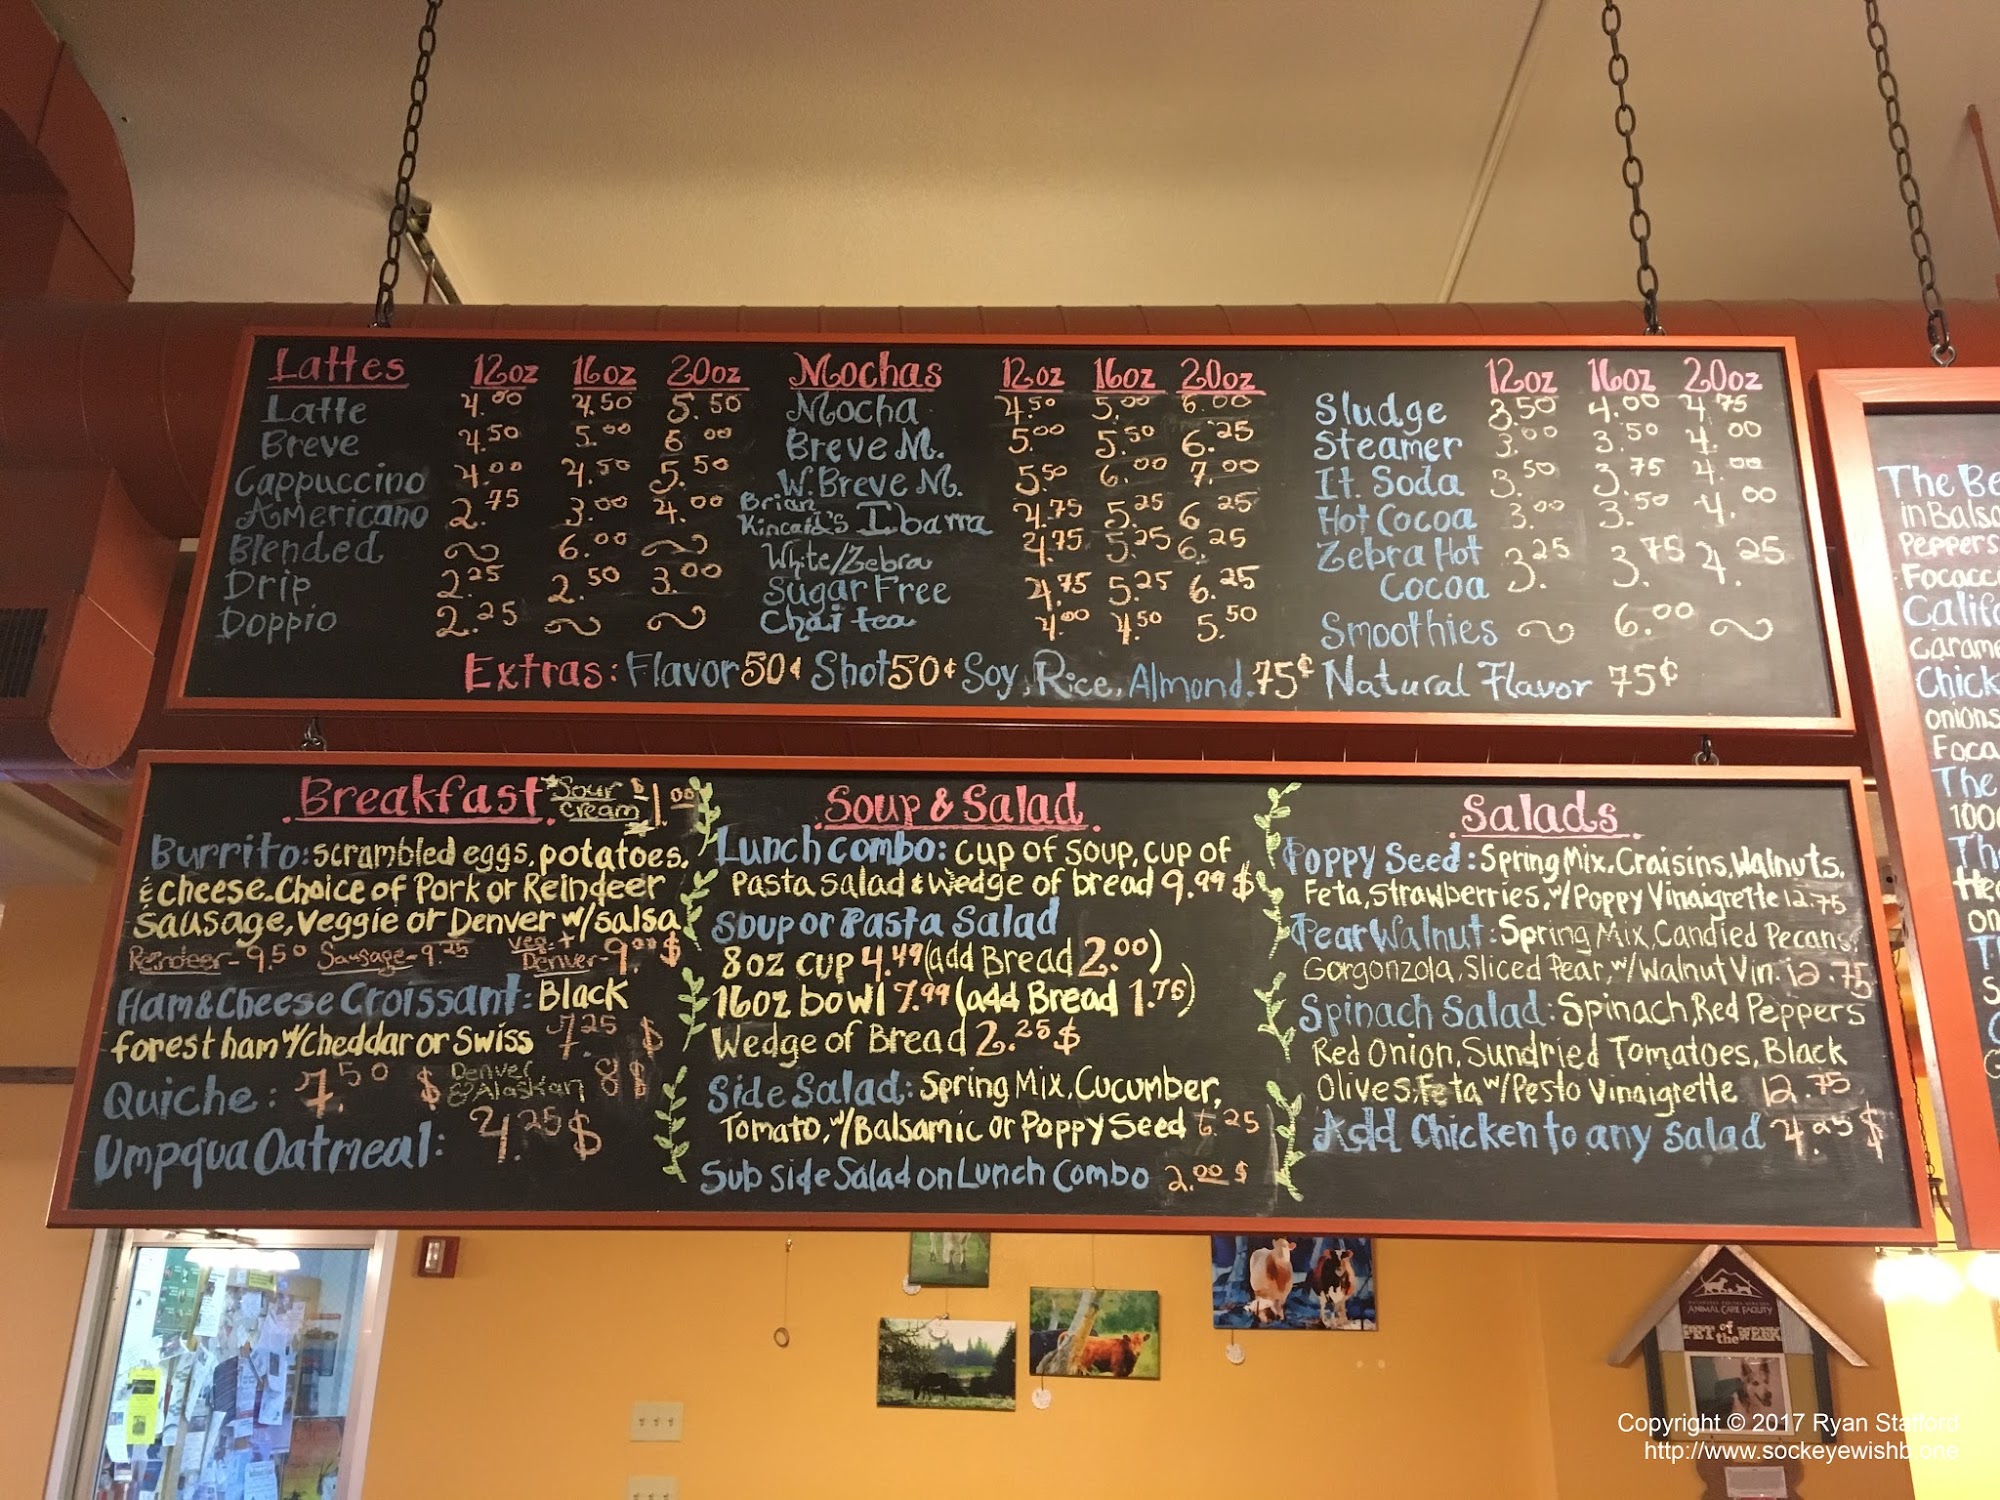 Lattes 12oz 16oz 20oz
Latte 4.00 4.50 5.50
Breve 4.50 5.00 6.00
Cappuccino 4.00 4.50 5.50
Americano 2.75 3.00 4.00
Blended ~ 6.00 ~
Drip 2.25 2.50 3.00
Doppio 2.25 ~ ~
Mochas 12oz 16oz 20oz
Mocha 4.50 5.00 6.00
Breve M. 5.00 5.50 6.25
W. Breve M. 5.50 6.00 7.00
Brian
Kincaid's Ibarra 4.75 5.25 6.25
White/Zebra 4.75 5.25 6.25
Sugar Free 4.75 5.25 6.25
Chai tea 4.00 4.50 5.50
12oz 16oz 20oz
Sludge 3.50 4.00 4.75
Steamer 3.00 3.50 4.00
It. Soda 3.50 3.75 4.00
Hot Cocoa 3.00 3.50 4.00
Zebra Hot 3.25 3.75 4.25
Cocoa
Smoothies ~ 6.00 ~
Extras: Flavor 50¢ Shot 50¢ Soy, Rice, Almond. 75¢ Natural Flavor 75¢
Breakfast *Sour Cream $1.00
Burrito: scrambled eggs, potatoes,
& cheese. Choice of Pork or Reindeer
Sausage, Veggie or Denver w/salsa
Reindeer- 9.50 Sausage- 9.25 Veg.+ Denver- 9.00 $
Ham & Cheese Croissant: Black
forest ham w/cheddar or Swiss 7.25 $
Quiche: 7.50 $ Denver & Alaskan 8 $
Umpqua Oatmeal: 4.25 $
Soup & Salad
Lunch combo: cup of soup, cup of
Pasta Salad & Wedge of bread 9.99 $
Soup or Pasta Salad
8oz cup 4.49 (add Bread 2.00)
16oz bowl 7.99 (add Bread 1.75)
Wedge of Bread 2.25 $
Side Salad: Spring Mix, Cucumber,
Tomato, w/Balsamic or Poppy Seed 6.25
Sub side Salad on Lunch Combo 2.00 $
Salads
Poppy Seed: Spring Mix, Craisins, Walnuts,
Feta, Strawberries, w/Poppy Vinaigrette 12.75
Pear Walnut: Spring Mix, Candied Pecans,
Gorgonzola, Sliced Pear, w/Walnut Vin. 12.75
Spinach Salad: Spinach, Red Peppers
Red Onion, Sundried Tomatoes, Black
Olives, Feta w/Pesto Vinaigrette 12.75
Add Chicken to any salad 4.25 $
The Be
in Balsa
Peppers
Focacc
Califo
carame
Chick
onions
Foca
The
100
Th
He
on
ANIMAL CARE FACILITY
PET of the WEEK
Copyright © 2017 Ryan Stafford
http://www.sockeyewishb.one